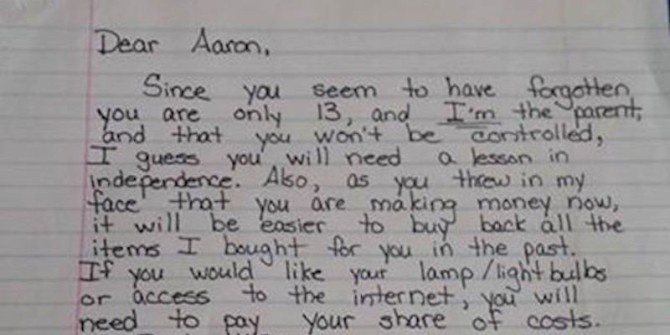 Dear Aaron,
Since you seem to have forgotten
you are only 13, and I'm the parent,
and that you won't be controlled,
I guess you will need a lesson in
independence. Also, as you threw in my
face that you are making money now,
it will be easier to buy back all the
items I bought for you in the past.
If you would like your lamp/lightbulbs
or access to the internet, you will
need to pay your share of costs.